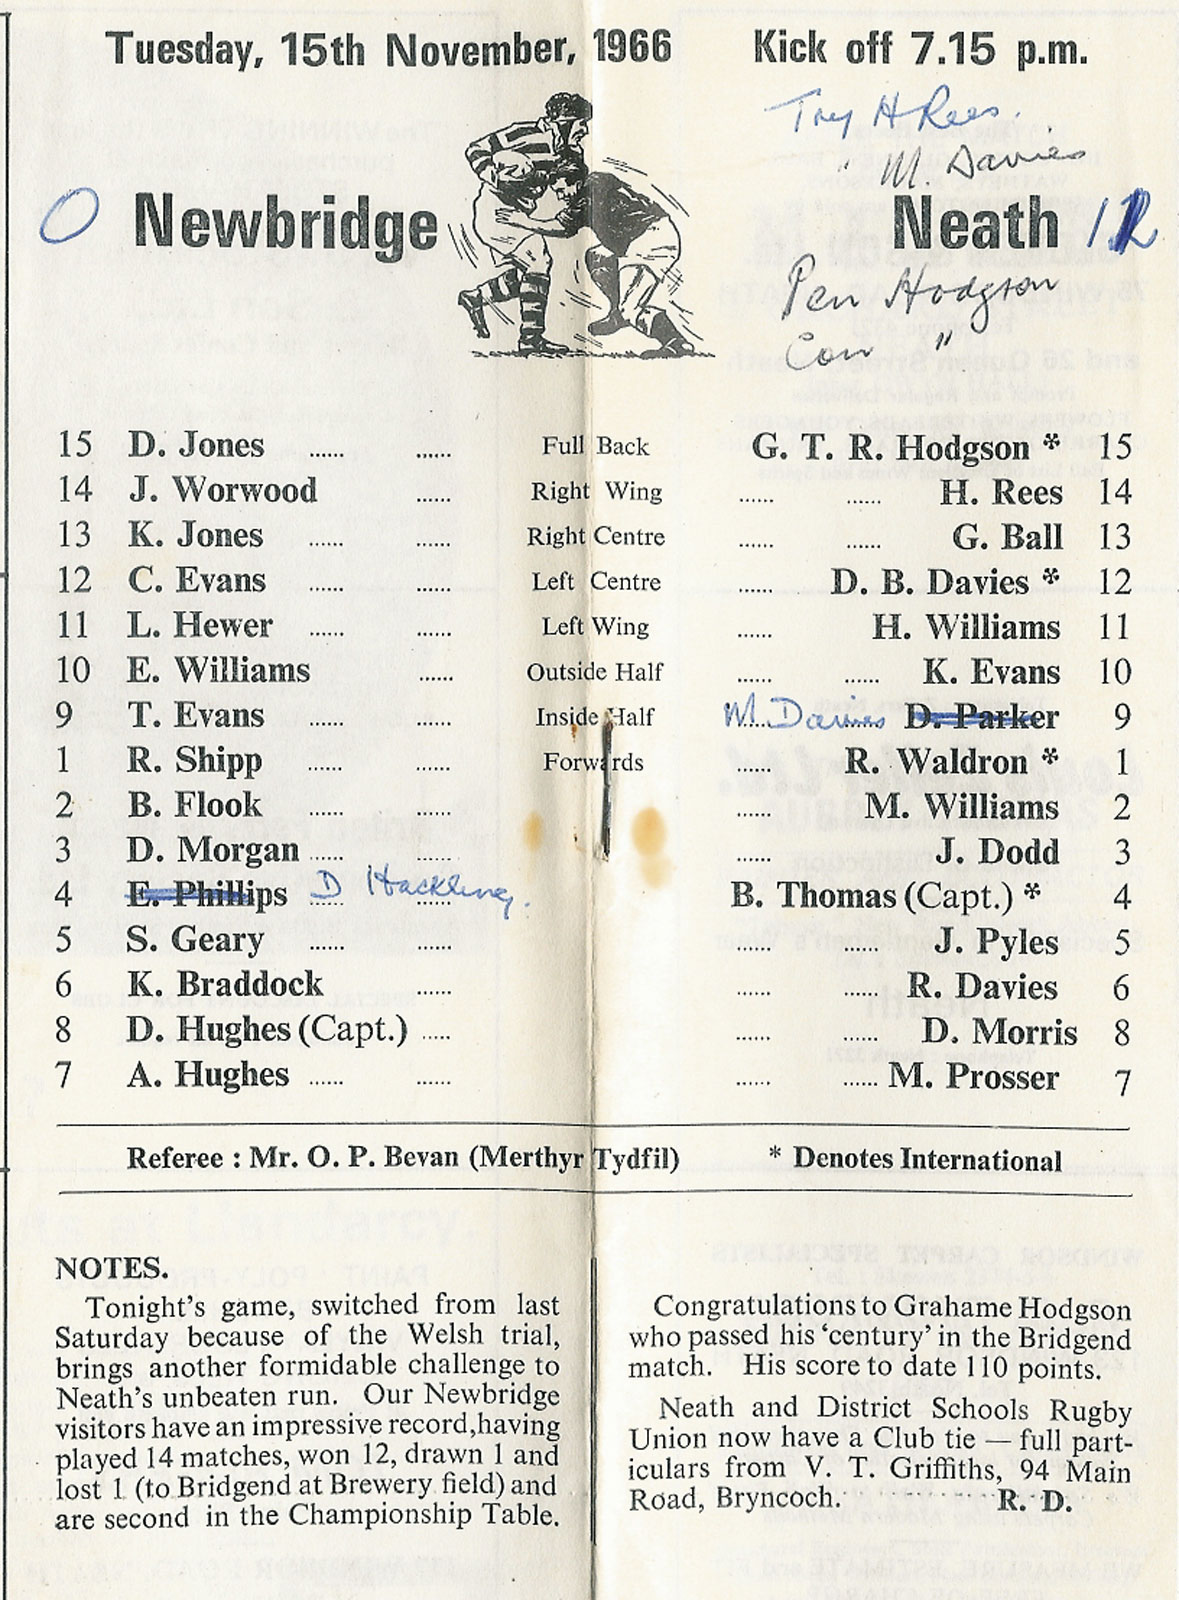 Tuesday, 15th November, 1966 Kick off 7.15 p.m.
Try H Rees.
" M. Davies
0 Newbridge Neath
Pen Hodgson
Con "
15 D. Jones ...... ...... Full Back G. T. R. Hodgson * 15
14 J. Worwood ...... Right Wing ...... ...... H. Rees 14
13 K. Jones ...... ...... Right Centre ...... ...... G. Ball 13
12 C. Evans ...... ...... Left Centre ...... D. B. Davies * 12
11 L. Hewer ...... ...... Left Wing ...... H. Williams 11
10 E. Williams ...... Outside Half ...... ...... K. Evans 10
9 T. Evans ...... ...... Inside Half M. Davies D. Parker 9
1 R. Shipp ...... ...... Forwards ...... R. Waldron * 1
2 B. Flook ...... ...... ...... M. Williams 2
3 D. Morgan ...... ...... ...... J. Dodd 3
4 E. Phillips D Hackling. B. Thomas (Capt.) * 4
5 S. Geary ...... ...... ...... ...... J. Pyles 5
6 K. Braddock ...... ...... ...... R. Davies 6
8 D. Hughes (Capt.) ..... ...... ...... D. Morris 8
7 A. Hughes ...... ...... ...... ...... M. Prosser 7
Referee : Mr. O. P. Bevan (Merthyr Tydfil) * Denotes International
NOTES.
Tonight's game, switched from last
Saturday because of the Welsh trial,
brings another formidable challenge to
Neath's unbeaten run. Our Newbridge
visitors have an impressive record,having
played 14 matches, won 12, drawn 1 and
lost 1 (to Bridgend at Brewery field) and
are second in the Championship Table.
Congratulations to Grahame Hodgson
who passed his 'century' in the Bridgend
match. His score to date 110 points.
Neath and District Schools Rugby
Union now have a Club tie — full part-
iculars from V. T. Griffiths, 94 Main
Road, Bryncoch. R. D.